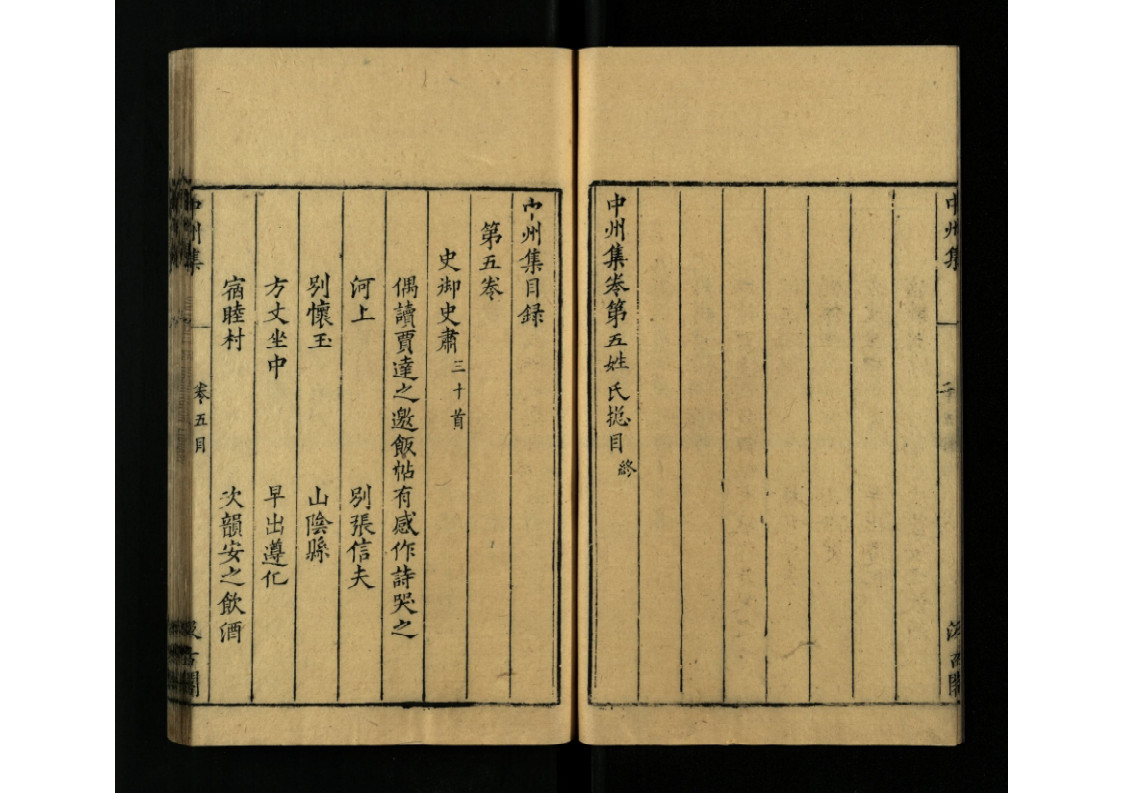 中州集
二
汲古閣
中州集卷第五姓氏摠目終
中州集目録
第五卷
史御史肅三十首
偶讀賈達之邀飯帖有感作詩哭之
河上 別張信夫
別懷玉 山陰縣
方丈坐中 早出遵化
宿睦村 次韻安之飲酒
中州集
卷五目
汲古閣